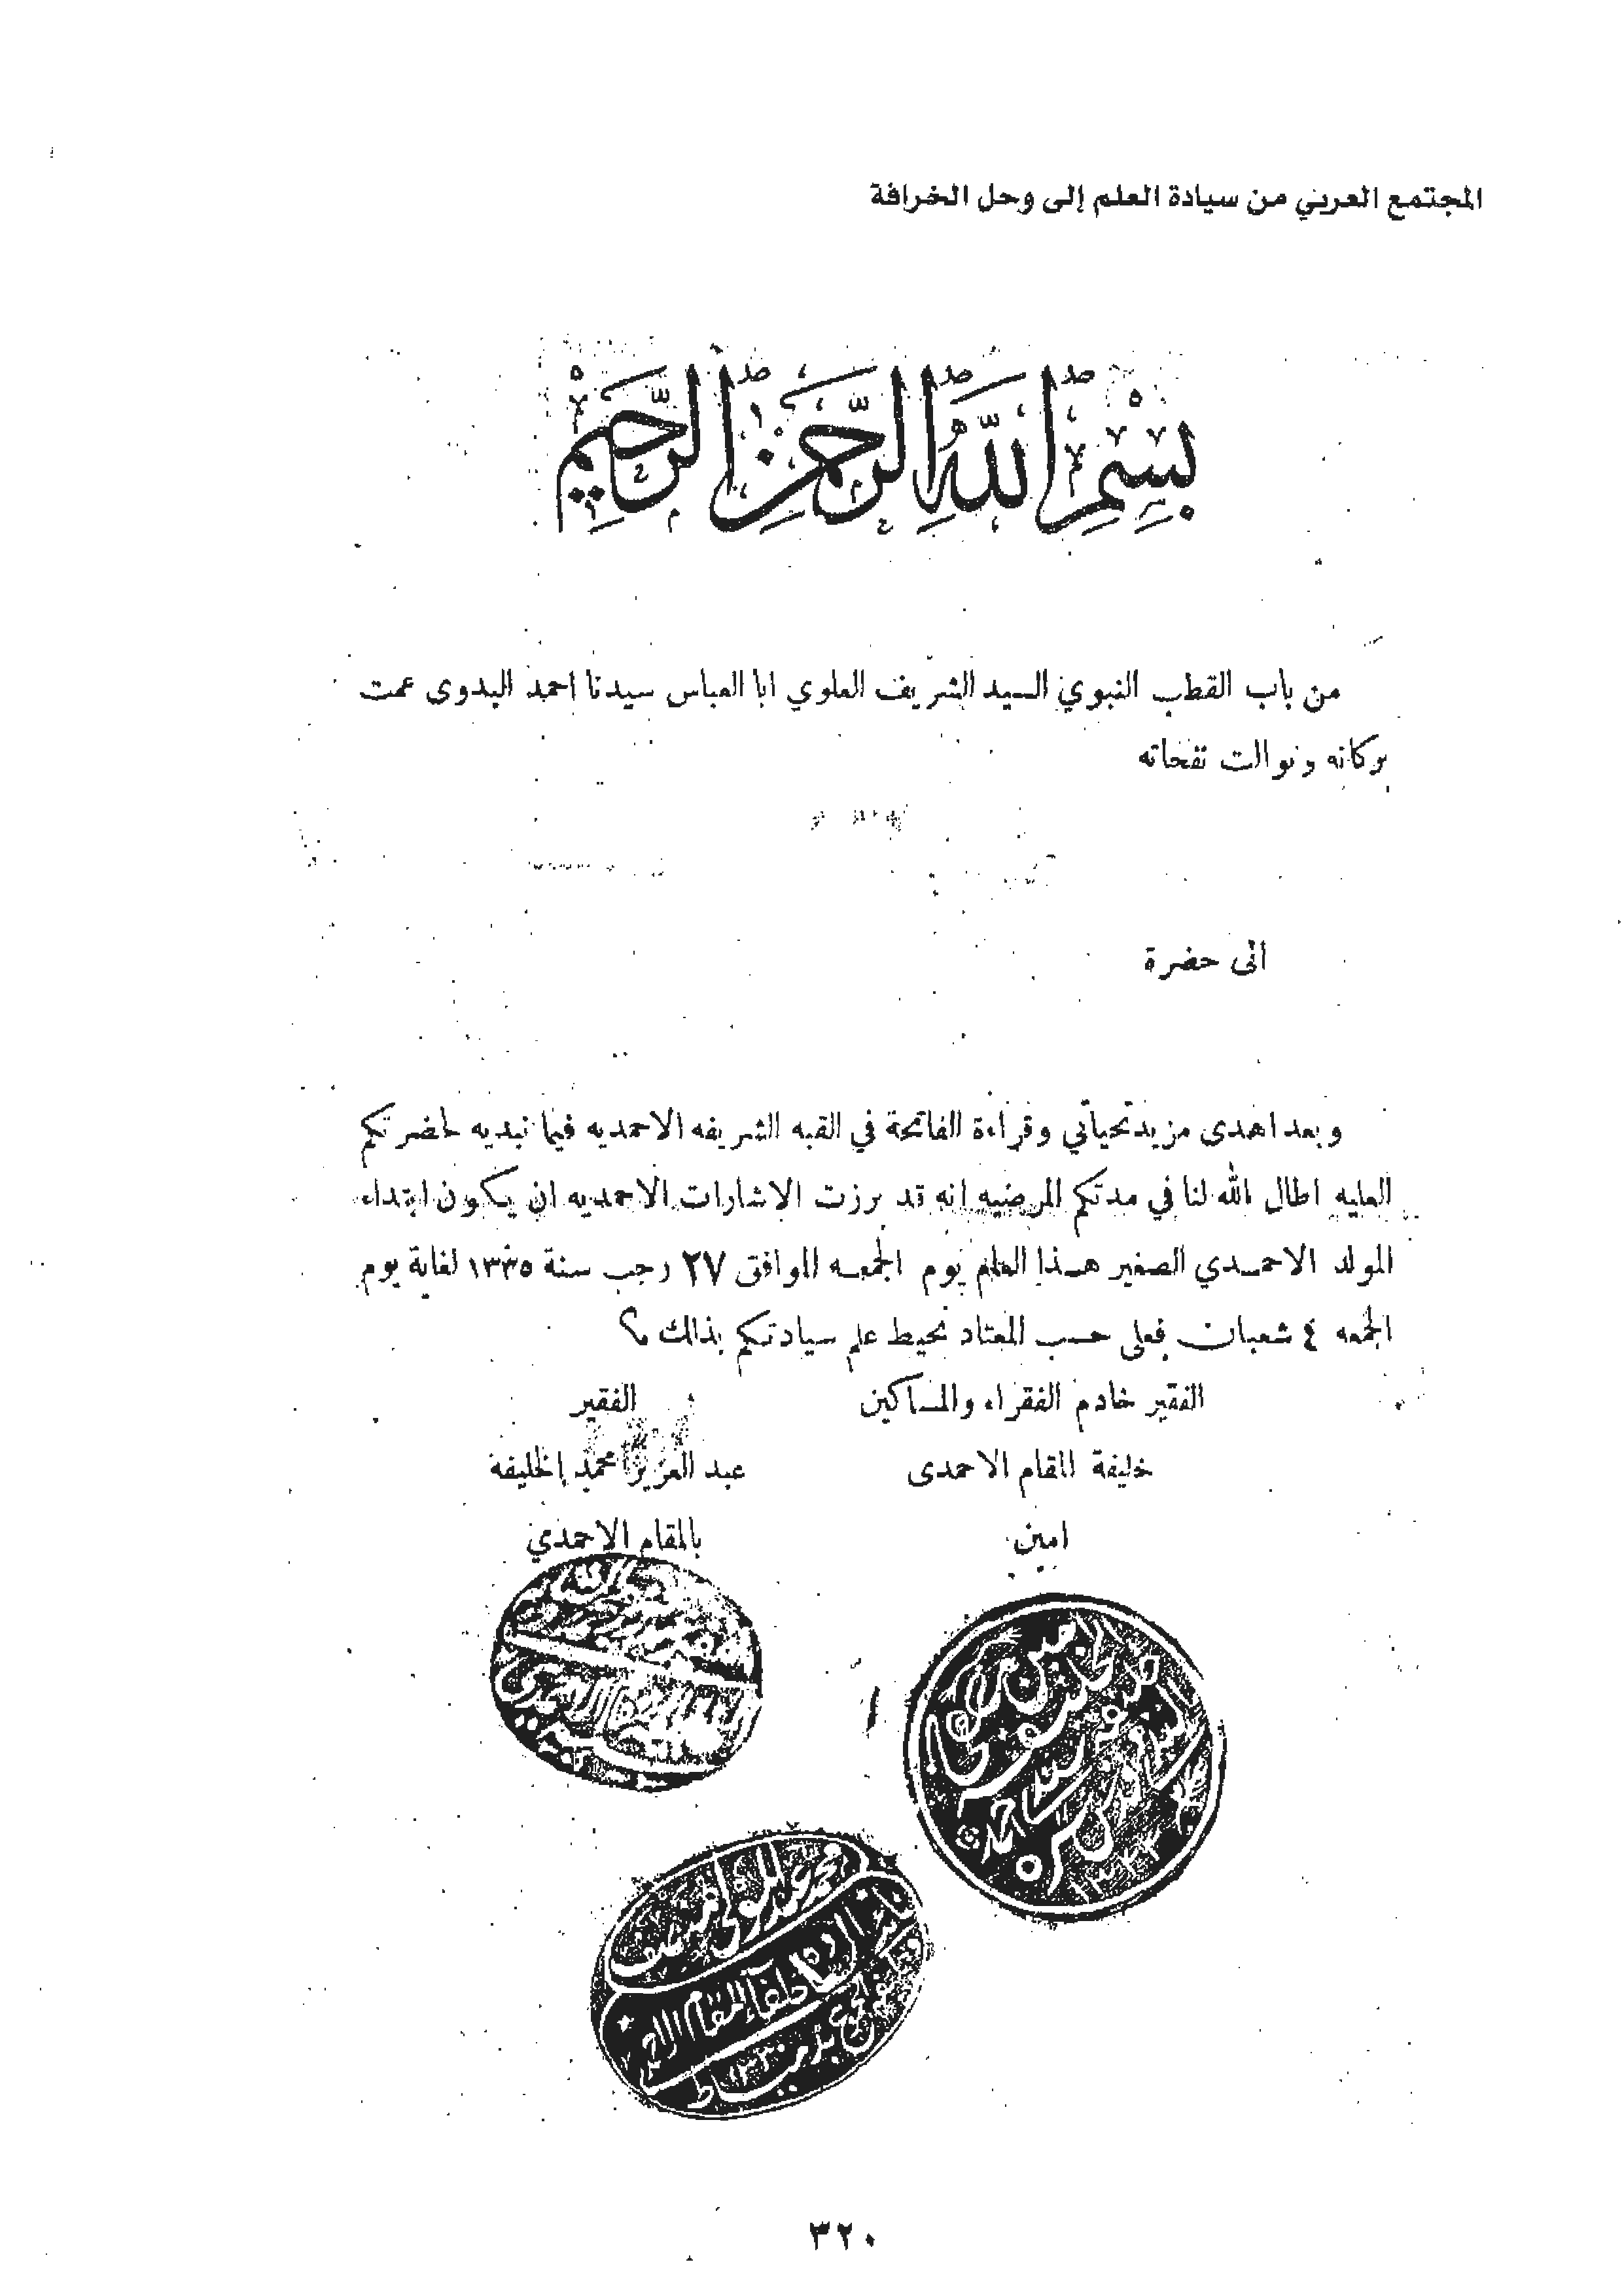 المجتمع العربي من سيادة العلم إلى وحل الخرافة
بِسْمِ اللَّهِ الرَّحْمَنِ الرَّحِيمِ
من باب القطب النبوي السيد الشريف العلوي ابا العباس سيدنا احمد البدوى عمت
بركاته وتوالت نفحاته
الى حضرة
وبعد اهدى مزيد تحياتي وقراءة الفاتحة في القبه الشريفه الاحمديه فيما نبديه لحضرتكم
العليه اطال الله لنا في مدتكم المرضيه انه قد برزت الاشارات الاحمديه ان يكون ابتداء
المولد الاحمدي الصغير هذا العام يوم الجمعه الموافق ٢٧ رجب سنة ١٣٣٥ لغاية يوم
الجمعه ٤ شعبان فعلى حسب المعتاد نحيط علم سيادتكم بذلك
الفقير خادم الفقراء والمساكين
خليفة المقام الاحمدى
امين
الفقير
عبد العزيز محمد الخليفه
بالمقام الاحمدي
٣٢٠